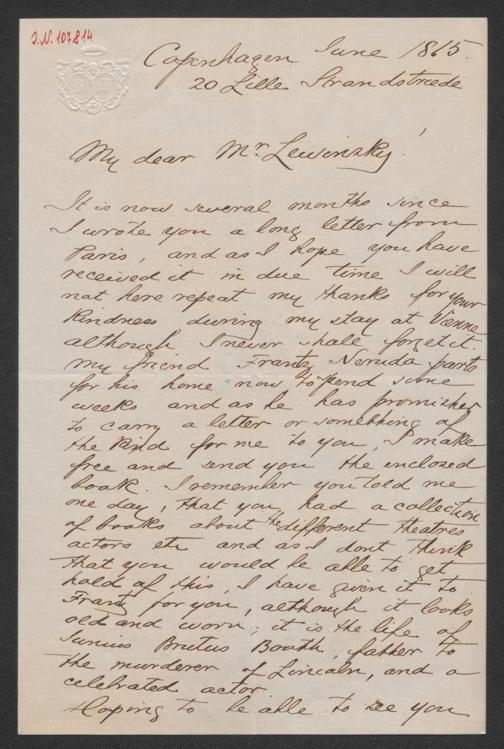 J.N. 107814
Copenhagen June 1865.
20 Lille Strandstræde
My dear Mr. Lewinsky!
It is now several months since
I wrote you a long letter from
Paris, and as I hope you have
received it in due time I will
not here repeat my thanks for your
kindness during my stay at Vienne
although I never shall forget it.
My friend Frantz Neruda parts
for his home now to spend some
weeks and as he has promised
to carry a letter or something of
the kind for me to you, I make
free and send you the enclosed
book. I remember you told me
one day, that you had a collection
of books about the different theatres
actors etc and as I dont think
that you would be able to get
hold of this, I have given it to
Frantz for you, although it looks
old and worn; it is the life of
Junius Brutus Booth, father to
the murderer of Lincoln, and a
celebrated actor.
Hoping to be able to see you